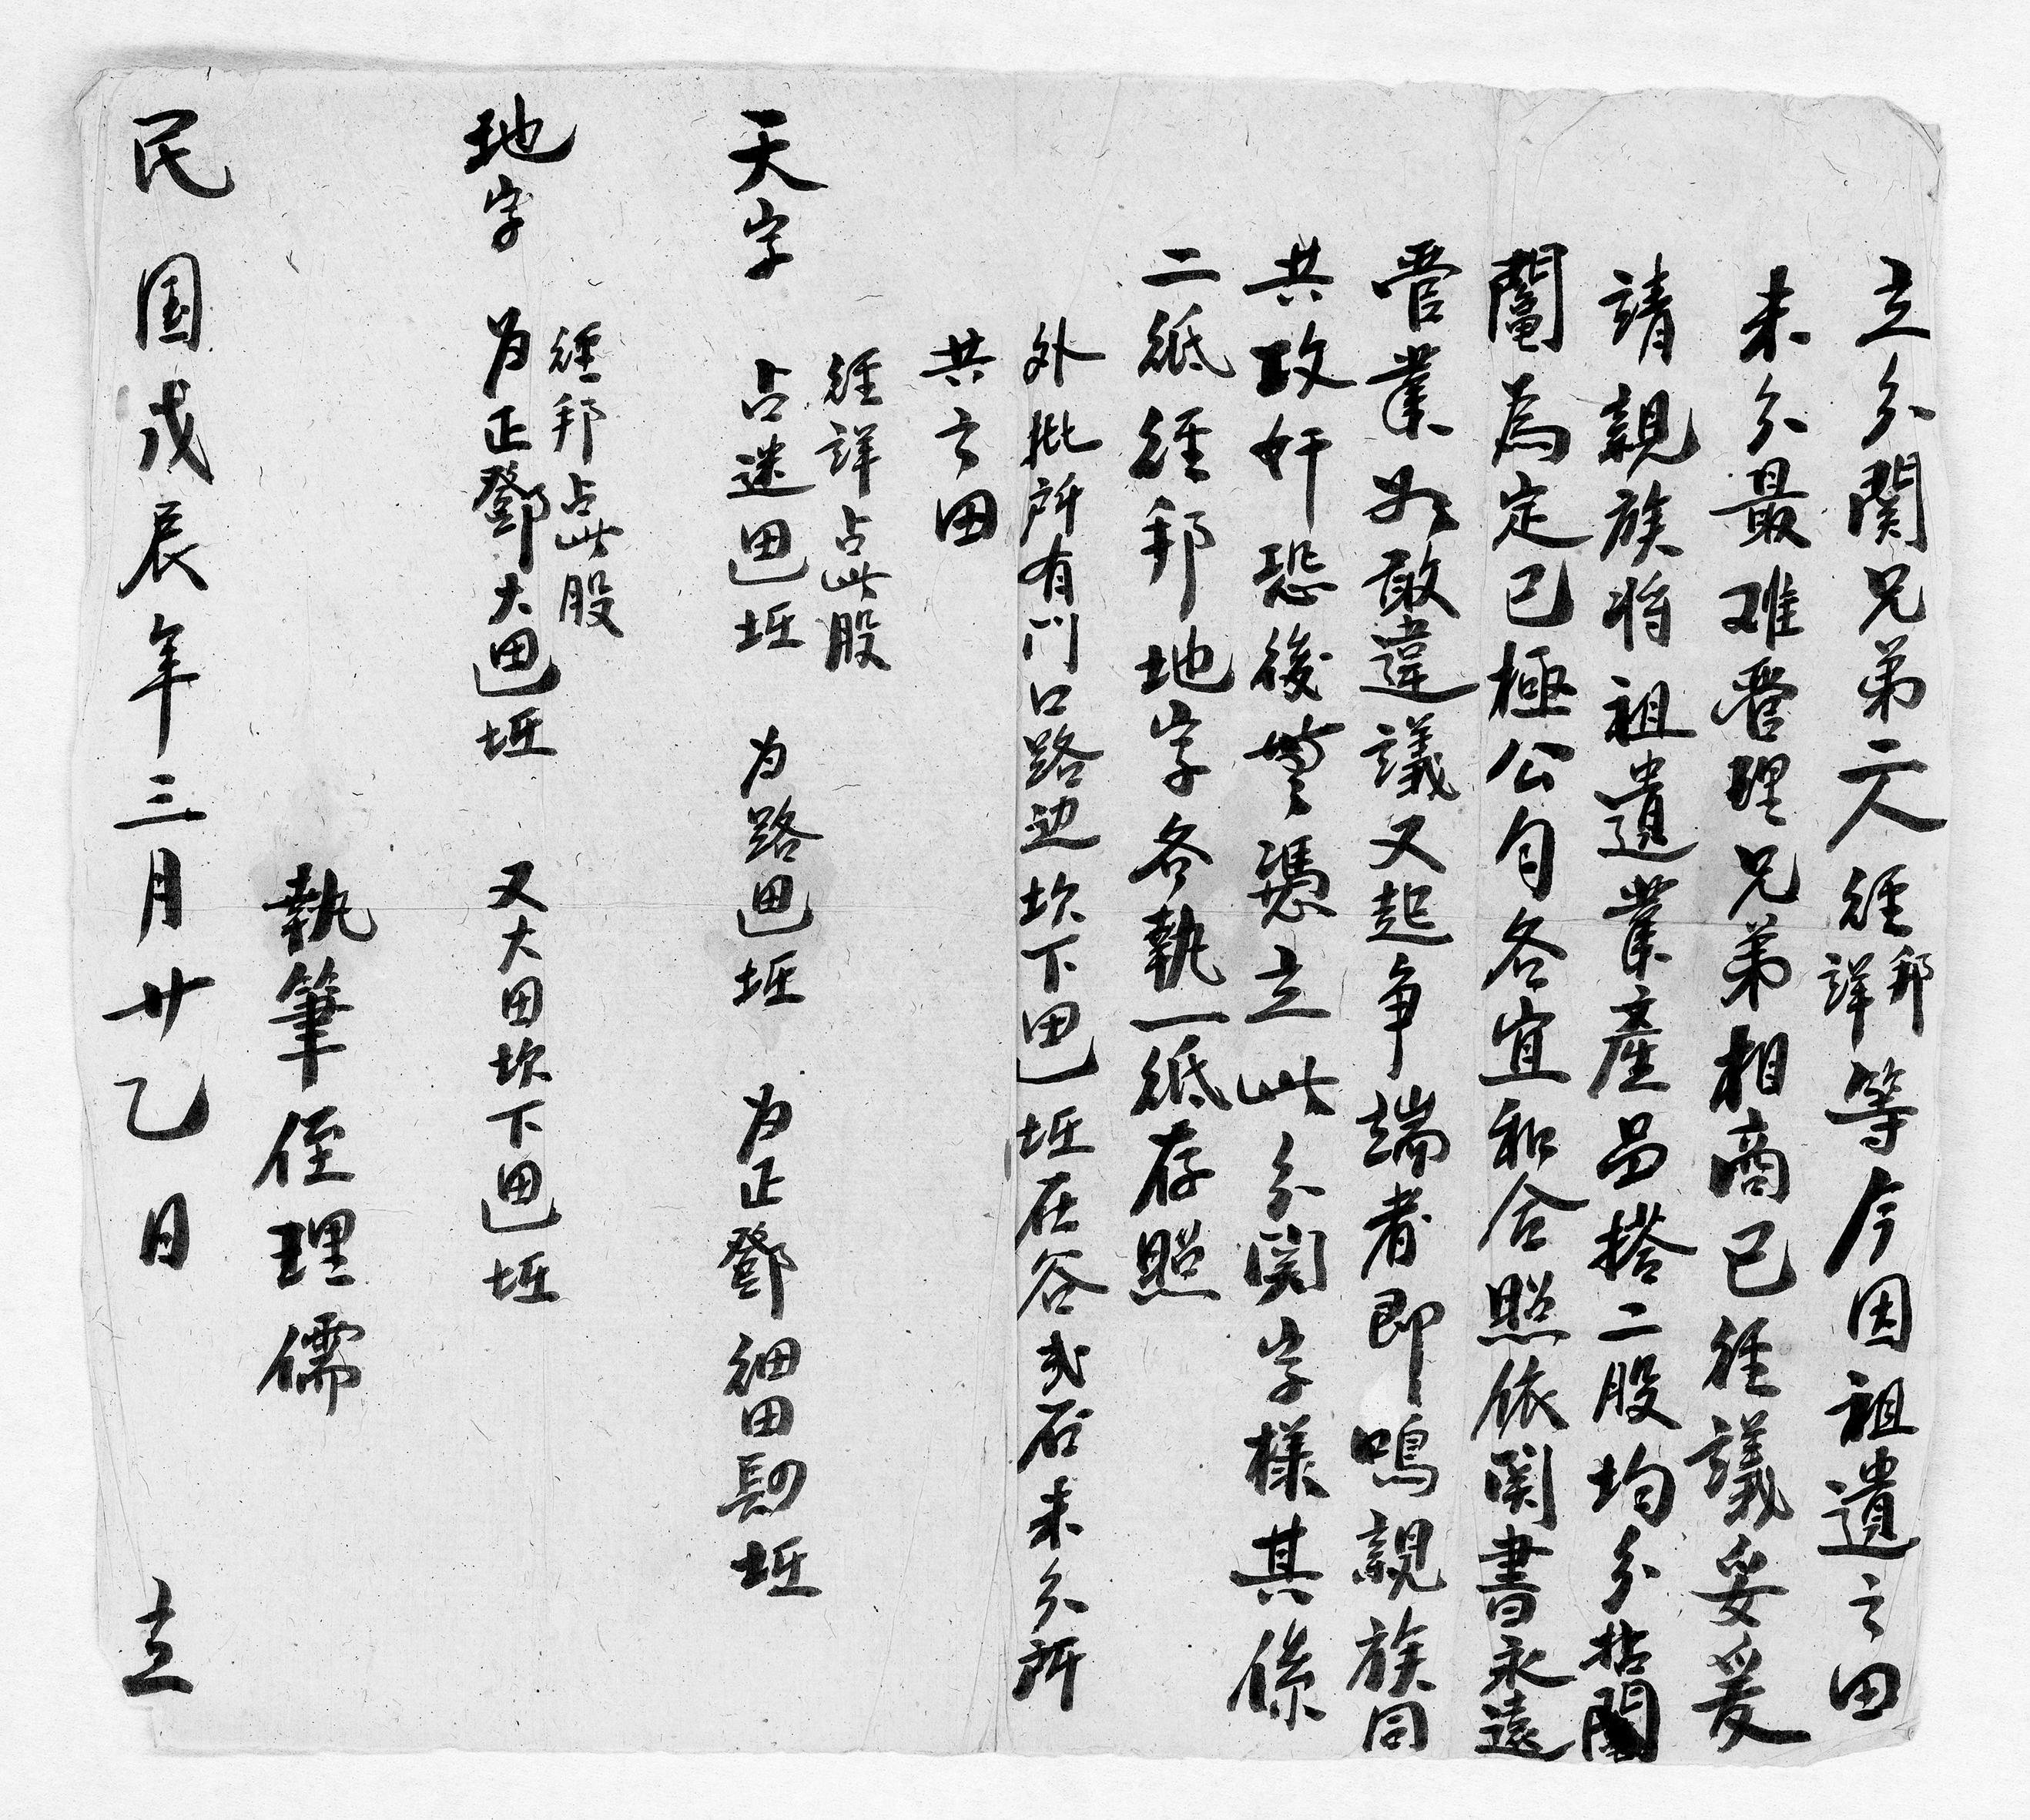 立分関兄弟二人經邦詳等今因祖遺之田
未分最难管理兄弟相商已經議妥爰
請親族将祖遺業產品搭二股均分拈鬮
鬮為定已極公匀各宜和合照依関書永遠
管業如敢違議又起争端者即鳴親族同
共攻奸恐後無憑立此分関字樣其係
二紙經邦地字各執一紙存照
外批所有门口路边坎下田一坵在谷弍石未分所
共之田
經詳占此股
天字 占迷田一坵 为路田一坵 为正鄧細田四坵
經邦占此股
地字 为正鄧大田一坵 又大田坎下田一坵
執筆侄理儒
民国戊辰年三月廿乙日 立